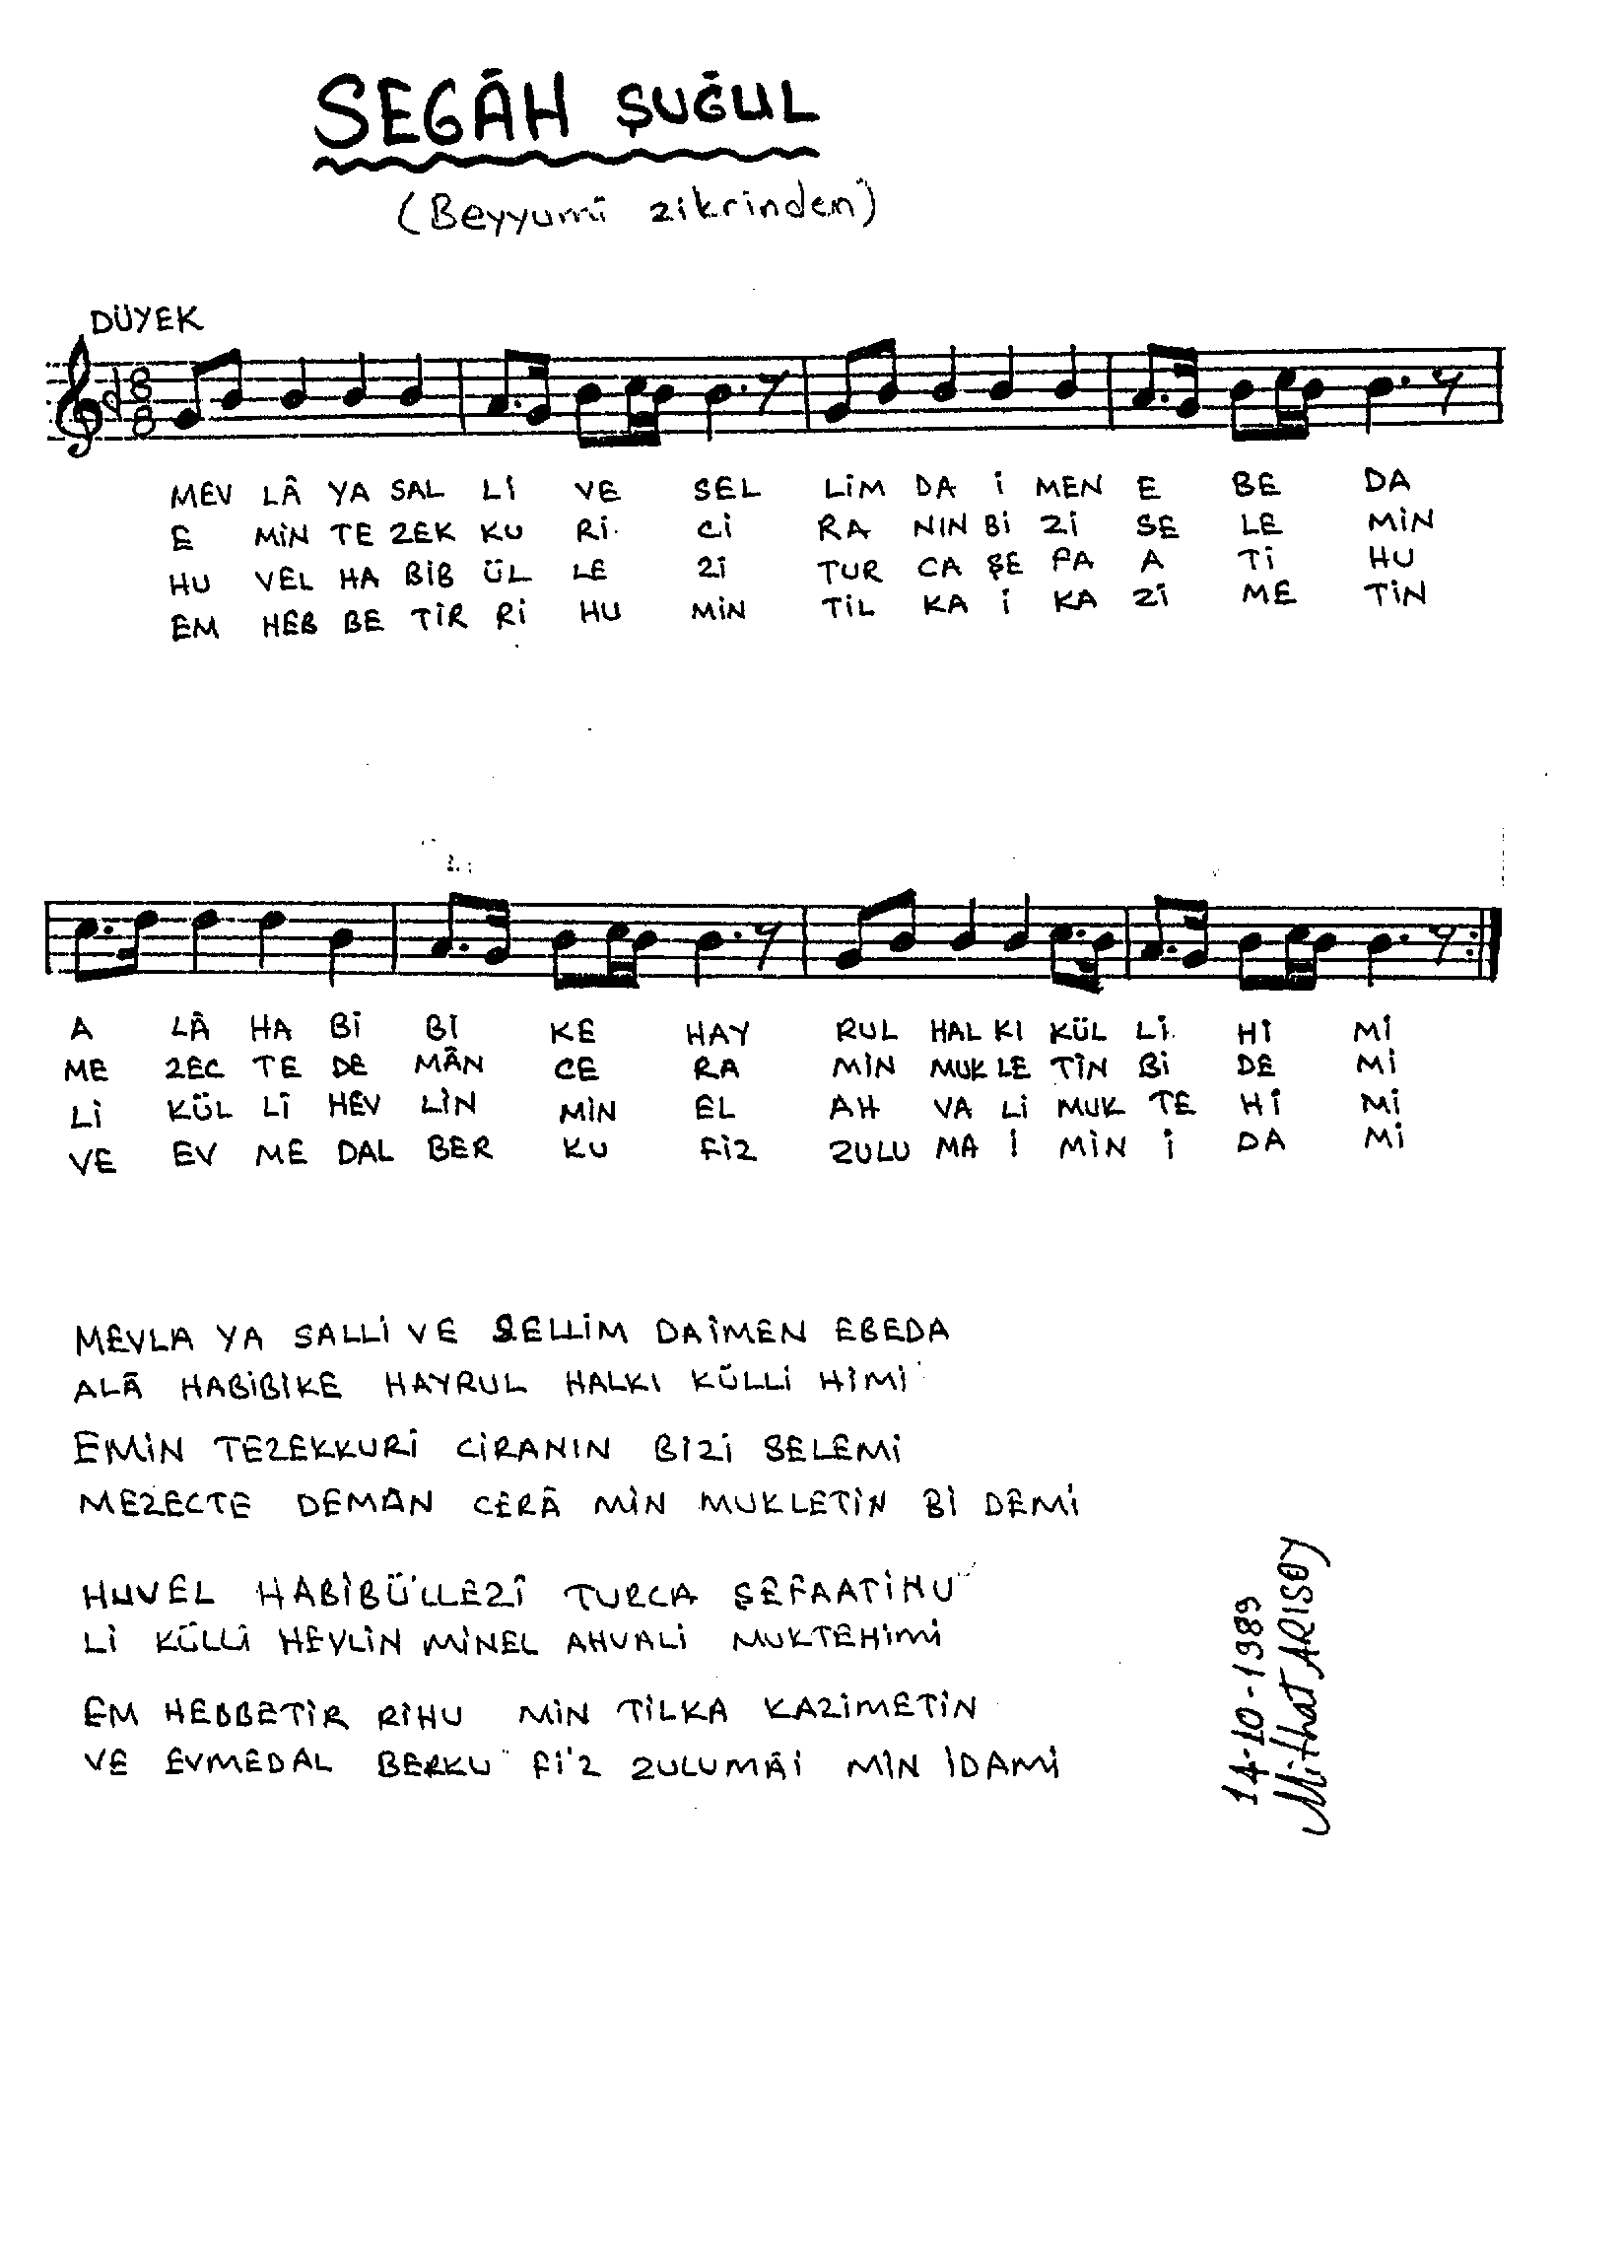 SEGÂH ŞUĞUL
(Beyyumî zikrinden)
DÜYEK
8
8
MEV LÂ YA SAL Lİ VE SEL LİM DA İ MEN E BE DA
E MİN TE ZEK KU Rİ Cİ RA NIN Bİ Zİ SE LE MİN
HU VEL HA BİB ÜL LE Zİ TUR CA ŞE FA A Tİ HU
EM HEB BE TİR Rİ HU MİN TİL KA İ KA Zİ ME TİN
A LÂ HA Bİ Bİ KE HAY RUL HAL KI KÜL Lİ Hİ Mİ
ME ZEC TE DE MÂN CE RA MİN MUK LE TİN Bİ DE Mİ
Lİ KÜL Lİ HEV LİN MİN EL AH VA Lİ MUK TE Hİ Mİ
VE EV ME DAL BER KU FİZ ZULU MA İ MİN İ DA Mİ
MEVLA YA SALLİ VE SELLİM DAİMEN EBEDA
ALÂ HABİBİKE HAYRUL HALKI KÜLLİ HİMİ
EMİN TEZEKKURİ CİRANIN BİZİ SELEMİ
MEZECTE DEMAN CERÂ MİN MUKLETİN Bİ DEMİ
HUVEL HABİBÜLLEZÎ TURCA ŞEFAATİHU
Lİ KÜLLİ HEVLİN MİNEL AHVALİ MUKTEHİMİ
EM HEBBETİR RİHU MİN TİLKA KAZİMETİN
VE EVMEDAL BERKU Fİ'Z ZULUMÂİ MİN İDAMİ
14-10-1989
Mithat ARISOY